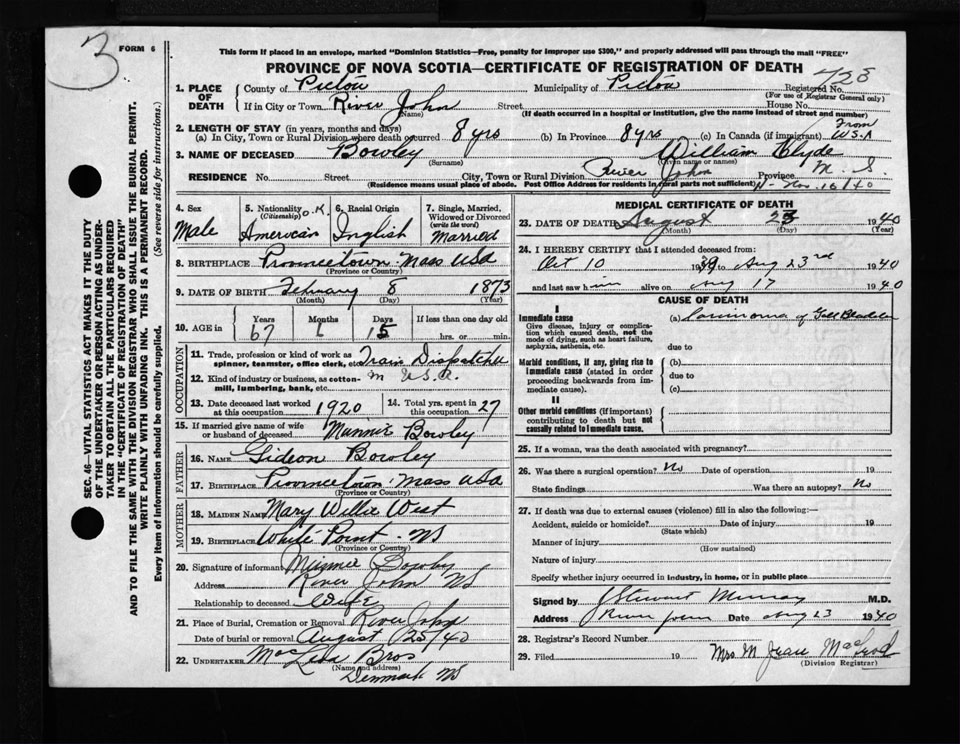 3
FORM 6
SEC. 46—VITAL STATISTICS ACT MAKES IT THE DUTY
OF THE UNDERTAKER OR PERSON ACTING AS UNDER-
TAKER TO OBTAIN ALL THE PARTICULARS REQUIRED
IN THE "CERTIFICATE OF REGISTRATION OF DEATH"
AND TO FILE THE SAME WITH THE DIVISION REGISTRAR WHO SHALL ISSUE THE BURIAL PERMIT.
WRITE PLAINLY WITH UNFADING INK. THIS IS A PERMANENT RECORD.
Every item of information should be carefully supplied. (See reverse side for instructions.)
This form if placed in an envelope, marked "Dominion Statistics—Free, penalty for improper use $300," and properly addressed will pass through the mail "FREE"
PROVINCE OF NOVA SCOTIA—CERTIFICATE OF REGISTRATION OF DEATH
728
1. PLACE OF DEATH County of Pictou Municipality of Pictou Registered No.
(For use of Registrar General only)
If in City or Town River John Street House No.
(Name) (If death occurred in a hospital or institution, give the name instead of street and number)
2. LENGTH OF STAY (in years, months and days)
(a) In City, Town or Rural Division where death occurred 8 yrs (b) In Province 8 yrs (c) In Canada (if immigrant) From USA
3. NAME OF DECEASED Bowley William Clyde
(Surname) (Given name or names)
RESIDENCE No. Street City, Town or Rural Division River John Province N. S.
(Residence means usual place of abode. Post Office Address for residents in rural parts not sufficient) Nov. 16/40
4. Sex Male
5. Nationality (Citizenship) O.K. American
6. Racial Origin English
7. Single, Married, Widowed or Divorced (write the word) Married
8. BIRTHPLACE Provincetown Mass USA
(Province or Country)
9. DATE OF BIRTH February 8 1873
(Month) (Day) (Year)
10. AGE in Years Months Days If less than one day old
67 6 15 hrs. or min.
OCCUPATION
11. Trade, profession or kind of work as spinner, teamster, office clerk, etc. Train Dispatcher
12. Kind of industry or business, as cotton-mill, lumbering, bank, etc. in U.S.A.
13. Date deceased last worked at this occupation 1920
14. Total yrs. spent in this occupation 27
15. If married give name of wife or husband of deceased Minnie Bowley
FATHER
16. NAME Gideon Bowley
17. BIRTHPLACE Provincetown Mass USA
(Province or Country)
MOTHER
18. MAIDEN NAME Mary Willie West
19. BIRTHPLACE White Point - NS
(Province or Country)
20. Signature of informant Minnie Bowley
Address River John NS
Relationship to deceased Wife
21. Place of Burial, Cremation or Removal River John
Date of burial or removal August 25/40
22. UNDERTAKER Bros
(Name and address)
Denmark NS
MEDICAL CERTIFICATE OF DEATH
23. DATE OF DEATH August 23 1940
(Month) (Day) (Year)
24. I HEREBY CERTIFY that I attended deceased from:
Oct 10 1939 to Aug 23rd 1940
and last saw him alive on Aug 17 1940
CAUSE OF DEATH
I
Immediate cause (a) Carcinoma of Gall Bladder
Give disease, injury or complication which caused death, not the mode of dying, such as heart failure, asphyxia, asthenia, etc.
due to
Morbid conditions, if any, giving rise to immediate cause (stated in order proceeding backwards from immediate cause).
(b)
due to
(c)
II
Other morbid conditions (if important) contributing to death but not causally related to immediate cause.
25. If a woman, was the death associated with pregnancy?
26. Was there a surgical operation? No Date of operation 19
State findings Was there an autopsy? No
27. If death was due to external causes (violence) fill in also the following:—
Accident, suicide or homicide? Date of injury 19
(State which)
Manner of injury
(How sustained)
Nature of injury
Specify whether injury occurred in industry, in home, or in public place
Signed by J Stewart Murray M.D.
Address River John Date Aug 23 1940
28. Registrar's Record Number
29. Filed 19 Mrs M Jean MacLeod
(Division Registrar)